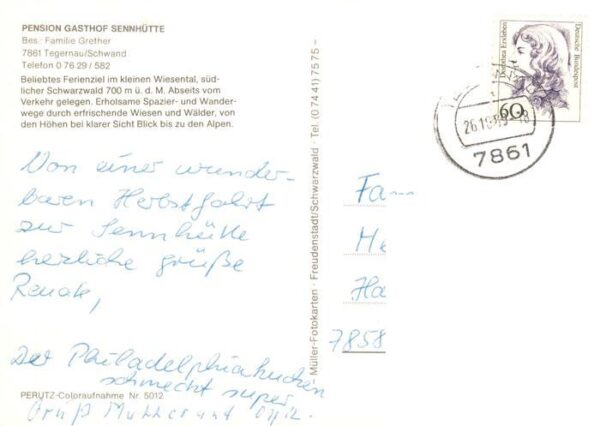 PENSION GASTHOF SENNHÜTTE
Bes.: Familie Grether
7861 Tegernau/Schwand
Telefon 0 76 29 / 582
Beliebtes Ferienziel im kleinen Wiesental, süd-
licher Schwarzwald 700 m ü. d. M. Abseits vom
Verkehr gelegen. Erholsame Spazier- und Wander-
wege durch erfrischende Wiesen und Wälder, von
den Höhen bei klarer Sicht Blick bis zu den Alpen.
Von einer wunder-
baren Herbstfahrt
zur Sennhütte
herzliche Grüße
Renate,
Der Philadelphiakuchen
schmeckt super
PERUTZ-Coloraufnahme Nr. 5012
Gruß Mutter und
Müller-Fotokarten · Freudenstadt/Schwarzwald · Tel. (0 74 41) 75 75 –
Dorothea Erxleben
Deutsche Bundespost
60
7861
Fa
He
Ha
7858